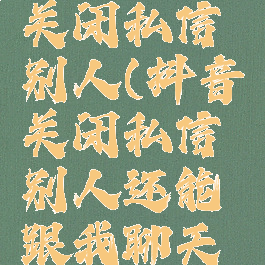 关闭私信
别人(抖音
关闭私信
别人还能
跟我聊天